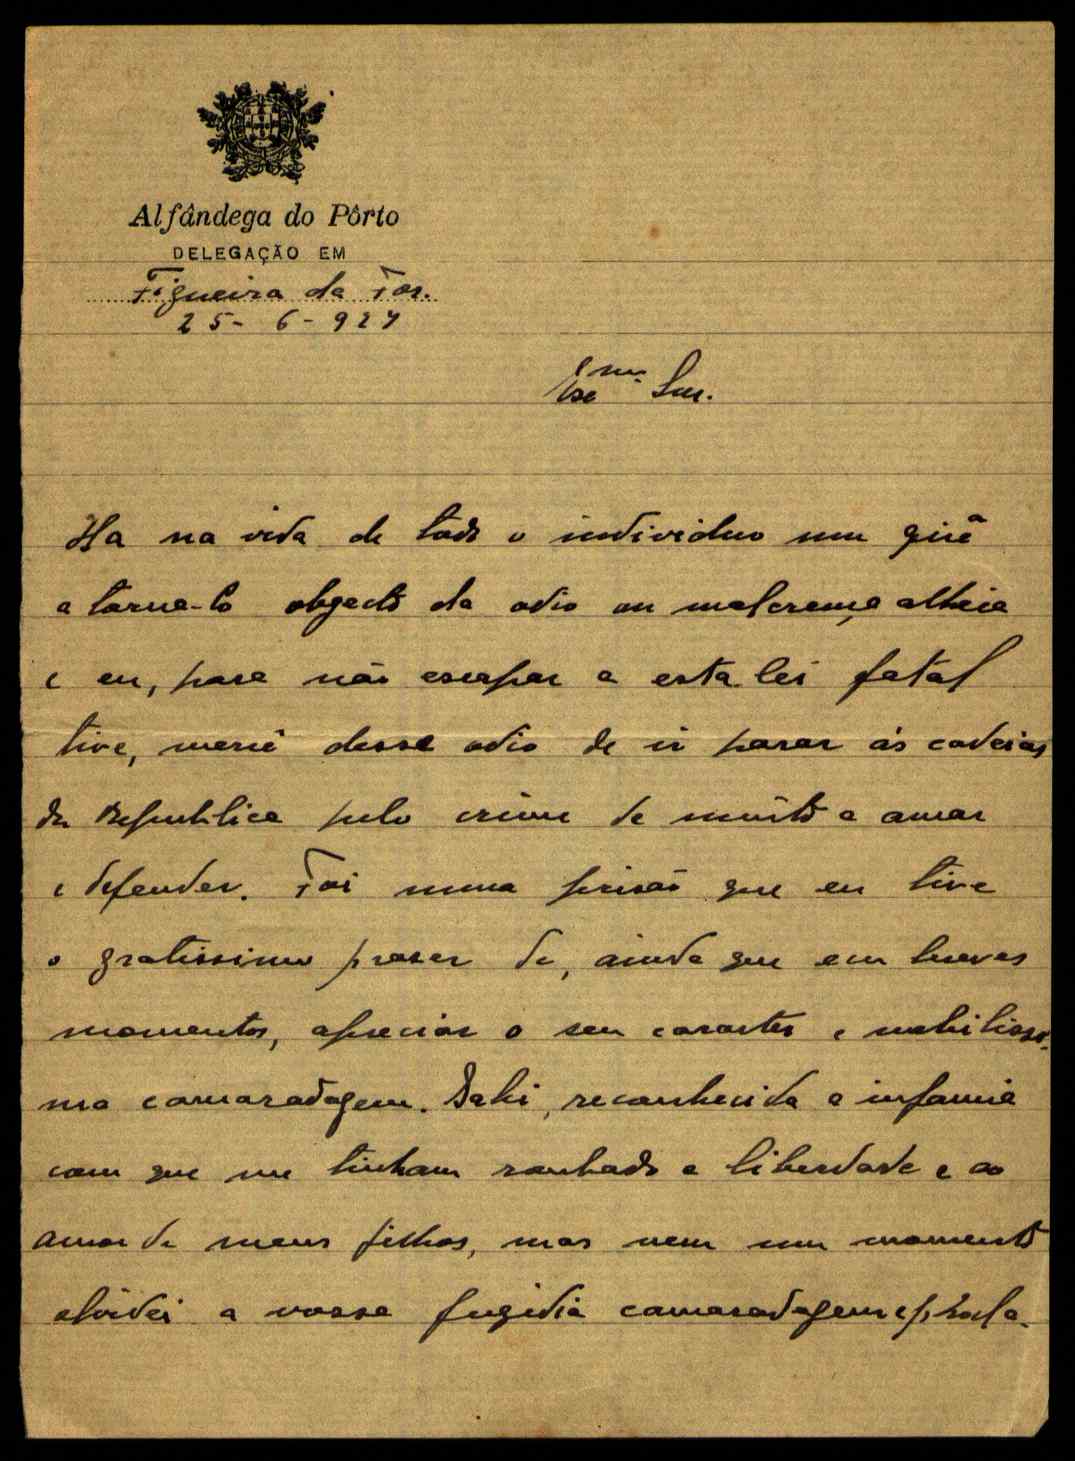 Alfândega do Pôrto
DELEGAÇÃO EM
Figueira da Foz.
25- 6- 927
Exmo Snr.
Ha na vida de todo o individuo um quê
a torna-lo objecto da odio ou malcrença alheia
e eu, para não escapar a esta lei fatal
tive, mercê desse odio de ir parar ás cadeias
da Republica pelo crime de muito a amar
e defender. Foi numa prisão que eu tive
o gratissimo praser de, ainda que em breves
momentos, apreciar o seu caracter e nobilissi-
ma camaradagem. Dahi, reconhecida a infamia
com que me tinham roubado a liberdade e ao
amor de meus filhos, mas nem um momento
olvidei a vossa fugidia camaradagem